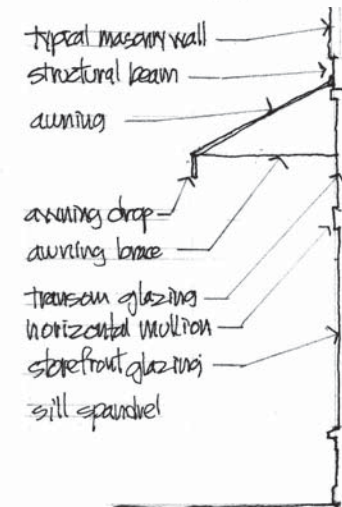 typical masonry wall
structural beam
awning
awning drop
awning brace
transom glazing
horizontal mullion
storefront glazing
sill spandrel